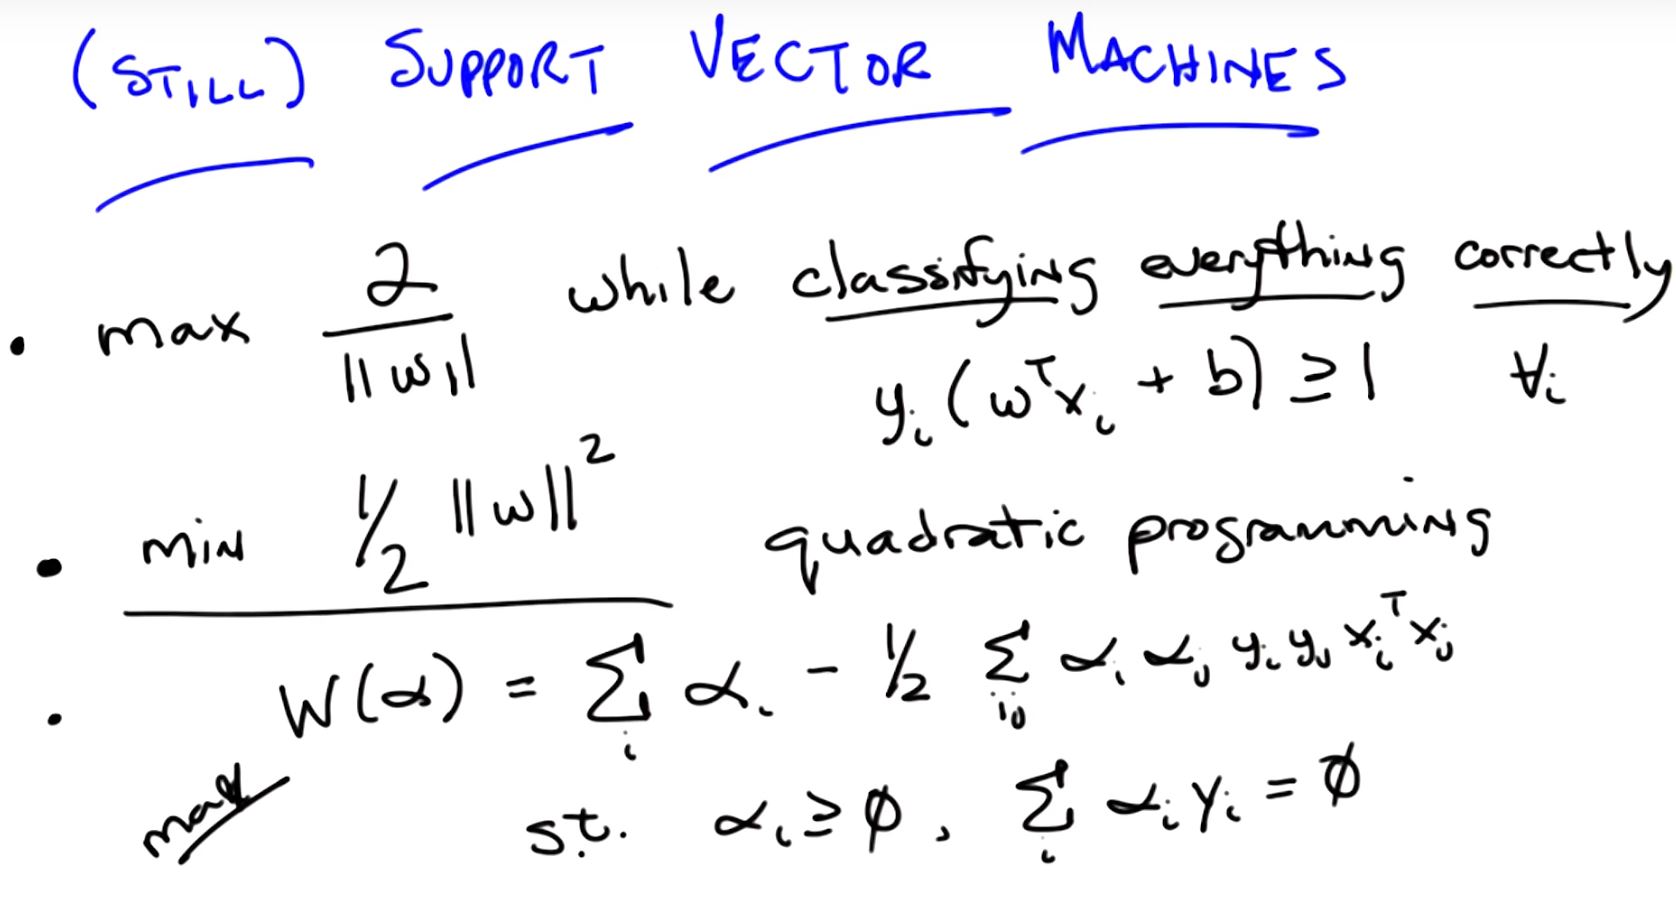 (STILL) SUPPORT VECTOR MACHINES
• max 2/||w|| while classifying everything correctly
yᵢ(wᵀxᵢ + b) ≥ 1 ∀ᵢ
• min 1/2 ||w||² quadratic programming
• W(α) = Σᵢ αᵢ - 1/2 Σᵢⱼ αᵢ αⱼ yᵢ yⱼ xᵢᵀxⱼ
max s.t. αᵢ ≥ ∅, Σᵢ αᵢyᵢ = ∅